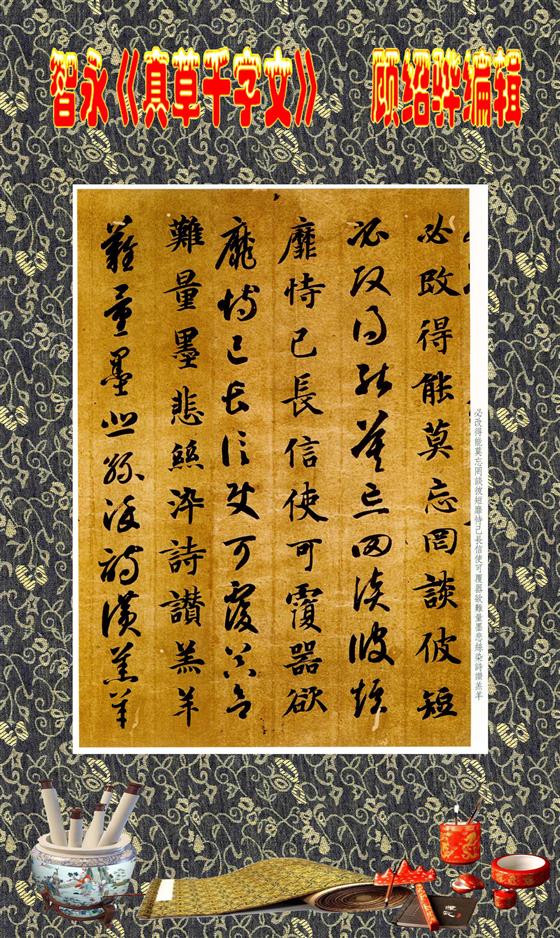 智永《真草千字文》 顾绍骅编辑
必改得能莫忘罔談彼短
必改得能莫忘罔談彼短
靡恃己長信使可覆器欲
靡恃己長信使可覆器欲
難量墨悲絲染詩讃羔羊
難量墨悲絲染詩讃羔羊
必改得能莫忘罔談彼短靡恃己長信使可覆器欲難量墨悲絲染詩讚羔羊